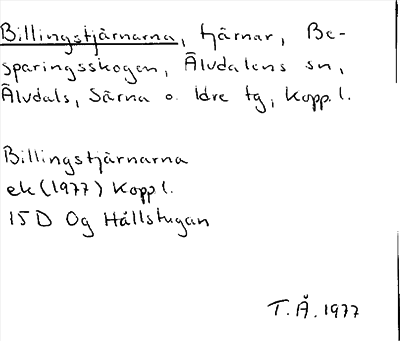 Billingstjärnarna, tjärnar, Be-
sparingsskogen, Älvdalens sn,
Älvdals, Särna o. Idre tg, Kopp.l.
Billingstjärnarna
ek (1977) Kopp l.
15 D 0g Hållstugan
T.Å. 1977